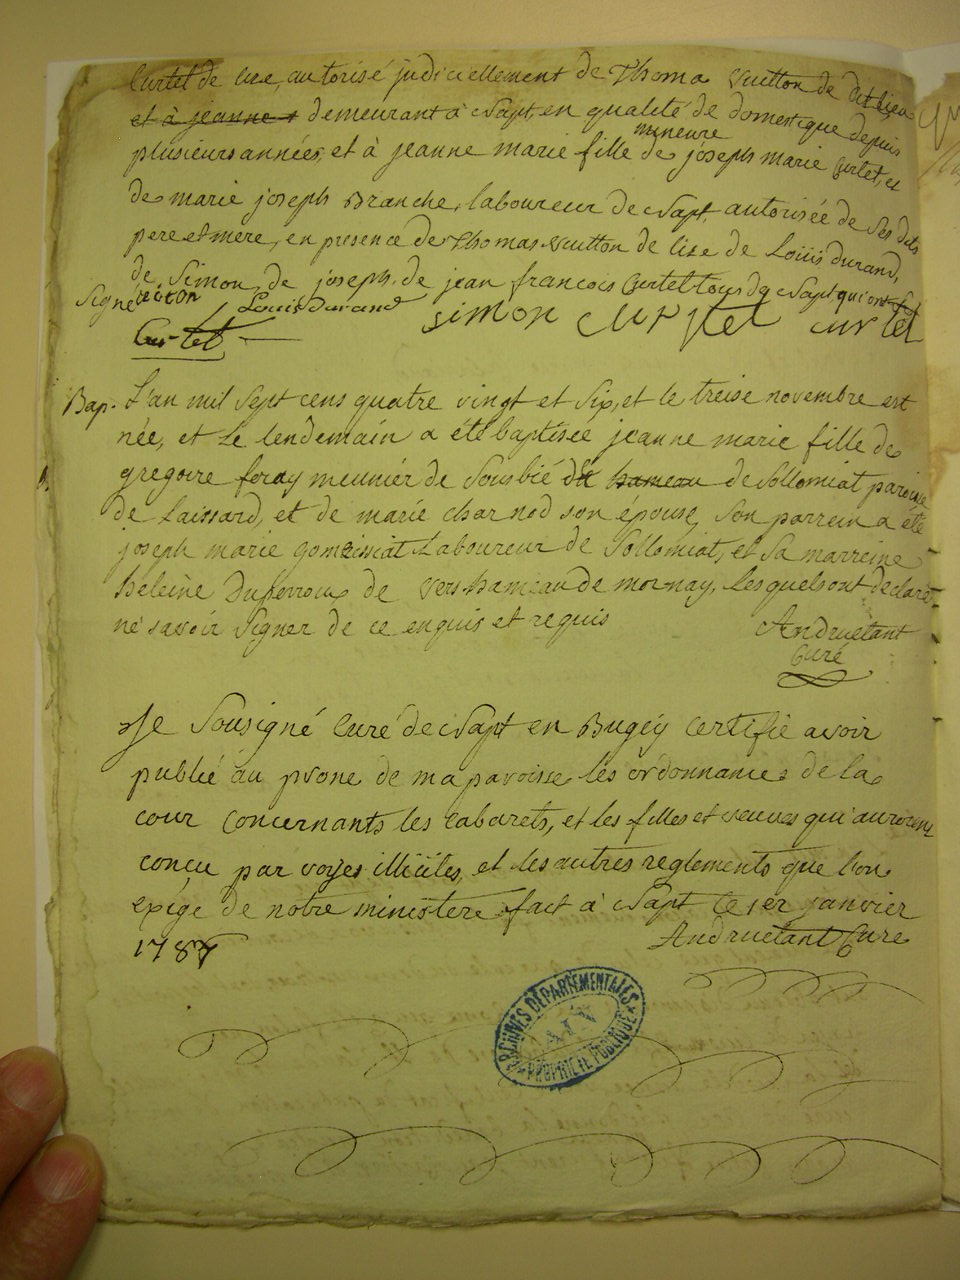 Curtet de lize, autorisé judiciellement de Thoma Vuitton de dit lieu
et à jeanne demeurant à Napt, en qualité de domestique depuis
plusieurs années, et à jeanne marie fille mineure de joseph marie Curtet, et
de marie joseph Branche, laboureur de Napt, autorisée de ses dits
pere et mere, en presence de Thomas Vuitton de lize de Loüis durand,
de Simon, de joseph, de jean françois Curtet tous de Napt qui ont
signé
Louis Durand simon curtet curtet
Curtet
Bap. L'an mil sept cens quatre vingt et six, et le treise novembre est
née, et le lendemain a été baptisée jeanne marie fille de
gregoire foray meunier de Sousbié dit hameau de Sollomiat paroisse
de Laissard, et de marie charnod son épouse, son parrein a été
joseph marie gomessiat Laboureur de Sollomiat, et sa marreine
heleine Duperrou de vers hameau de mornay, lesquels ont declaré
ne savoir signer de ce enquis et requis
Andruetant
Curé
Je sousigné Curé de Napt en Bugey certifie avoir
publié au prone de ma paroisse les ordonnances de la
cour concernants les cabarets, et les filles et veuves qui auroient
conçu par voyes illicites, et les autres reglements que l'on
exige de notre ministere fait à Napt le 1er janvier
1787 Andruetant Curé
ARCHIVES DÉPARTEMENTALES
AIN
PROPRIÉTÉ PUBLIQUE